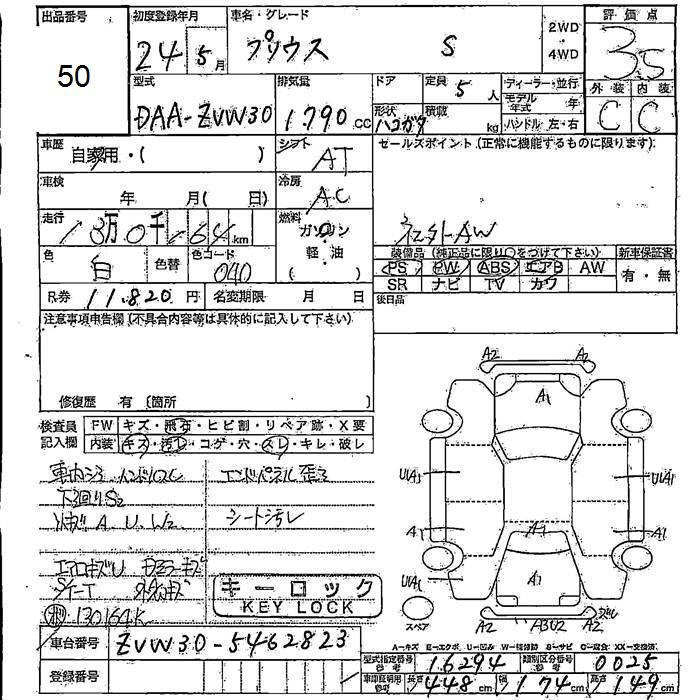 出品番号 初度登録年月 車名・グレード 評価点
50 24 5月 プリウス S 2WD 4WD 3.5
型式 排気量 ドア 定員 5人 ディーラー・並行 外装 内装
DAA-ZVW30 1.790cc 形状 ハコガタ 積載 kg モデル年式 年 C C
ハンドル 左・右
車歴 自家用・( ) シフト AT セールスポイント(正常に機能するものに限ります)
車検 年 月( 日) 冷房 AC
走行 13万0千164km 燃料 ガソリン 軽・油 ( ) 社外AW
装備品(純正品に限り○をつけて下さい) 新車保証書
色 白 色替 色コード 040 PS PW ABS エアB AW 有・無
SR ナビ TV カワ
R券 11.820円 名変期限 月 日 後日品
注意事項申告欄(不具合内容等は具体的に記入して下さい)
修復歴 有 〔箇所
検査員 FW キズ・飛石・ヒビ割・リペア跡・X要
記入欄 内装 キズ・汚レ・コゲ・穴・スレ・キレ・破レ
エンドパネル歪ミ
下廻りS2
A U W2 シート汚レ
エアロキズU
130164K
キーロック
KEY LOCK
A2 A2
A1
U1(A1) U1(A1)
A1 A1 A1
U1(A1) A1
スペア A2 A3U2 A2
車台番号 ZVW30-5462823
A-キズ E-エクボ U-凹み W-補修跡 S-サビ C-腐食 XX-交換済
型式指定番号 参考 16294 類別区分番号 参考 0025
登録番号 車庫証明用 参考 長さ 448cm 幅 174cm 高さ 149cm